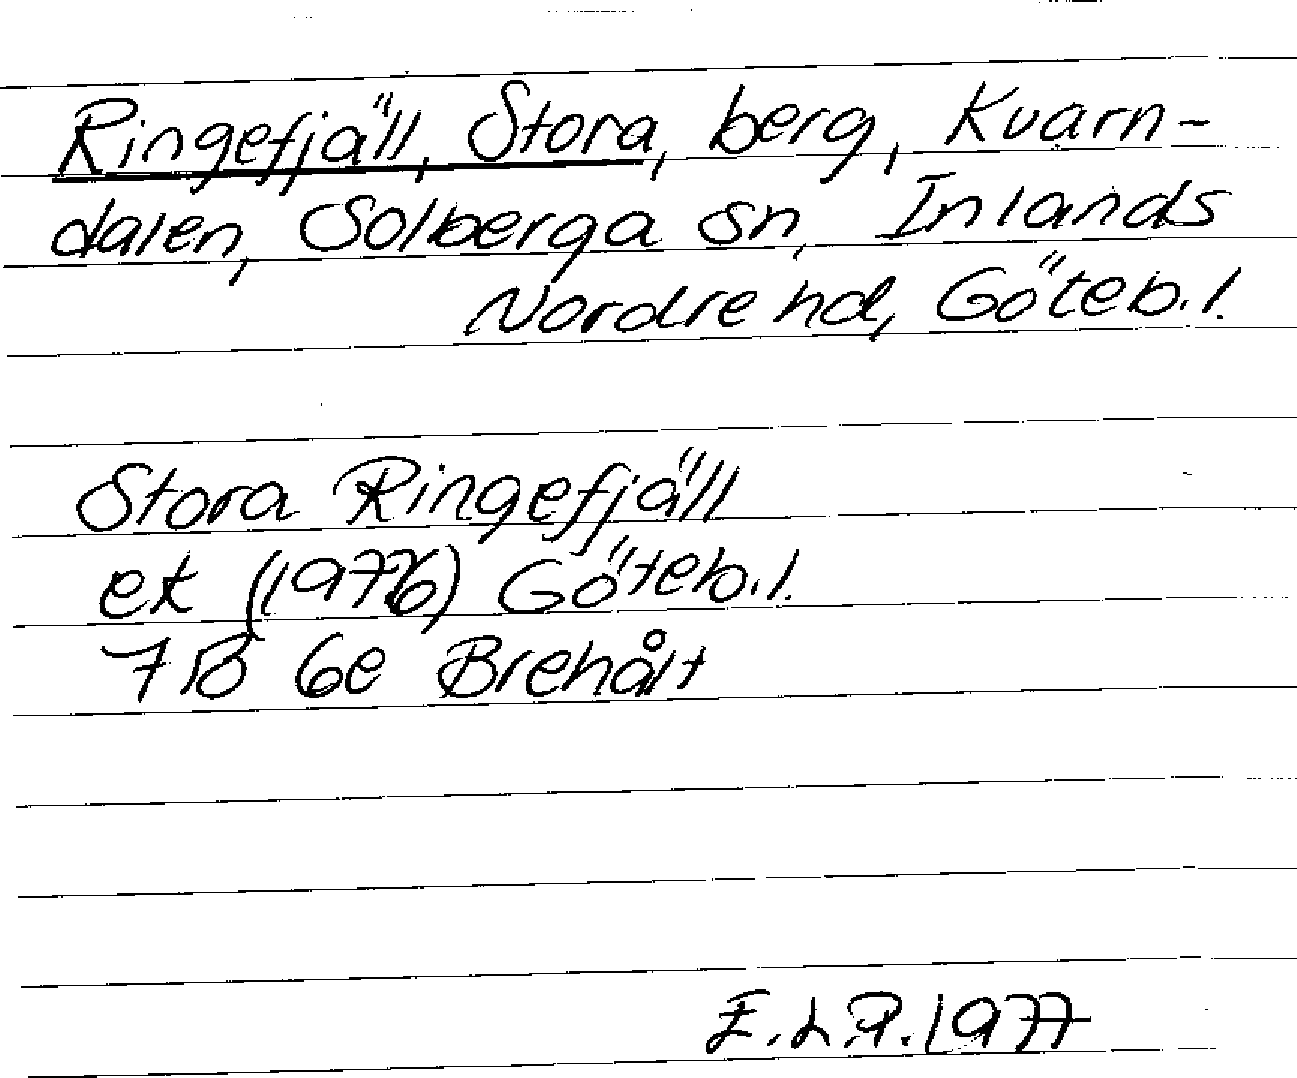 Ringefjäll, Stora, berg, Kvarn-
dalen, Solberga sn, Inlands
Nordre hd, Göteb.l.
Stora Ringefjäll
ek (1976) Göteb.l.
7B 6e Brehålt
E.L.P. 1977